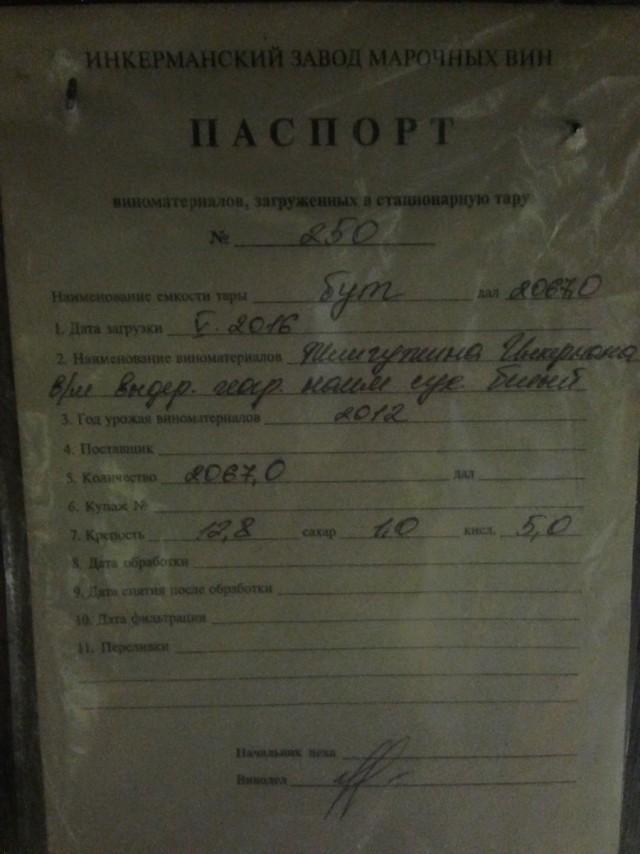 ИНКЕРМАНСКИЙ ЗАВОД МАРОЧНЫХ ВИН
ПАСПОРТ
виноматериалов, загруженных в стационарную тару
№ 250
Наименование емкости тары бут дал 2067,0
1. Дата загрузки V. 2016
2. Наименование виноматериалов Инкермана
в/м выдер. геогр. наим сух. белый
3. Год урожая виноматериалов 2012
4. Поставщик
5. Количество 2067,0 дал
6. Купаж №
7. Крепость 12,8 сахар 1,0 кисл. 5,0
8. Дата обработки
9. Дата снятия после обработки
10. Дата фильтрации
11. Переливки
Начальник цеха
Винодел